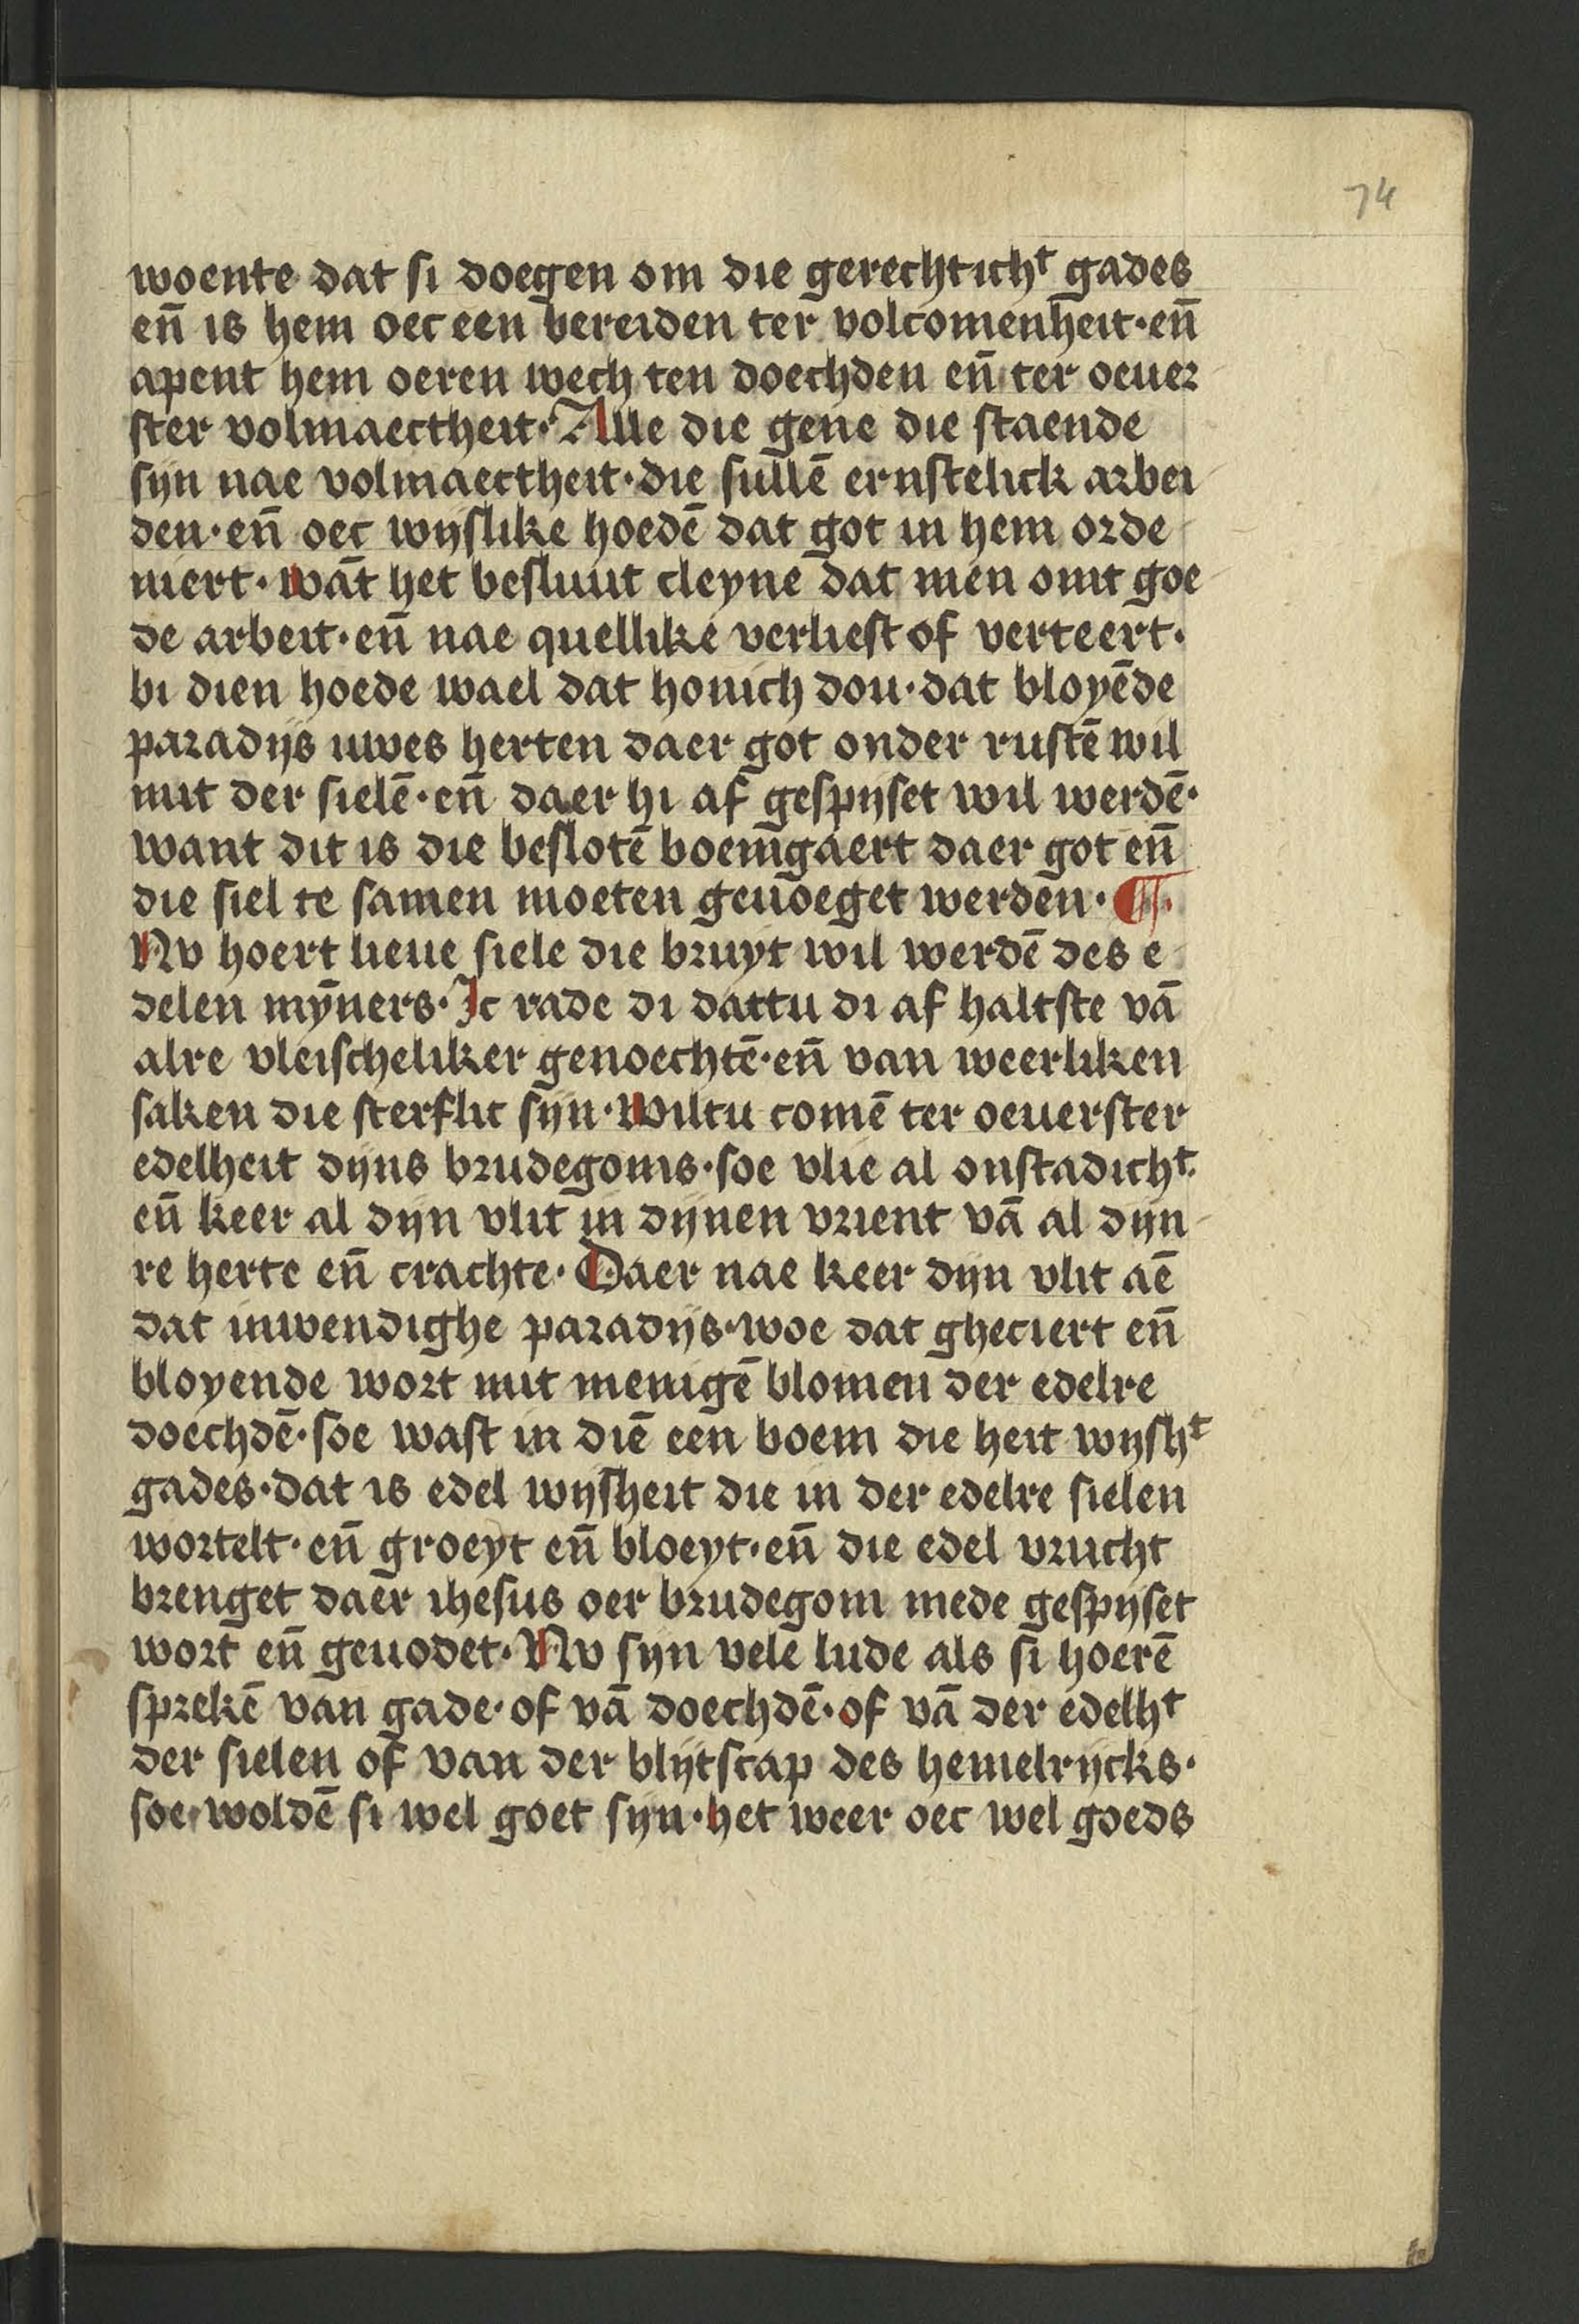 74
woente dat si doegen om die gerechtichᵗ gades
en̄ is hem oec een bereiden ter volcomenheit·en̄
apent hem oeren wech ten doechden en̄ ter oeuer
ster volmaectheit·Alle die gene die staende
sijn nae volmaectheit·die sullē ernstelick arbei
den·en̄ oec wijslike hoedē dat got in hem orde
niert·wāt het besluut cleyne dat men omt goe
de arbeit·en̄ nae quellike verliest of verteert·
bi dien hoede wael dat honich dou·dat bloyēde
paradijs uwes herten daer got onder rustē wil
mit der sielē·en̄ daer hi af gespijset wil werdē·
want dit is die beslotē boemgaert daer got en̄
die siel te samen moeten geuoeget werden·¶·
Nv hoert lieue siele die bruyt wil werdē des e
delen mȳners·Ic rade di dattu di af haltste vā
alre vleischeliker genoechtē·en̄ van weerliken
saken die sterflic sijn·Wiltu comē ter oeuerster
edelheit dijns brudegoms·soe vlie al onstadichᵗ
en̄ keer al dijn vlit in dijnen vrient vā al dijn
re herte en̄ crachte·Daer nae keer dijn vlit aē
dat inwendighe paradijs·woe dat gheciert en̄
bloyende wort mit menigē blomen der edelre
doechdē·soe wast in diē een boem die heit wijshᵗ
gades·dat is edel wijsheit die in der edelre sielen
wortelt·en̄ groeyt en̄ bloeyt·en̄ die edel vrucht
brenget daer ihesus oer brudegom mede gespijset
wort en̄ geuodet·Nv sijn vele lude als si hoerē
sprekē van gade·of vā doechdē·of vā der edelhᵗ
der sielen of van der blijtscap des hemelrijcks·
soe woldē si wel goet sijn·het weer oec wel goeds